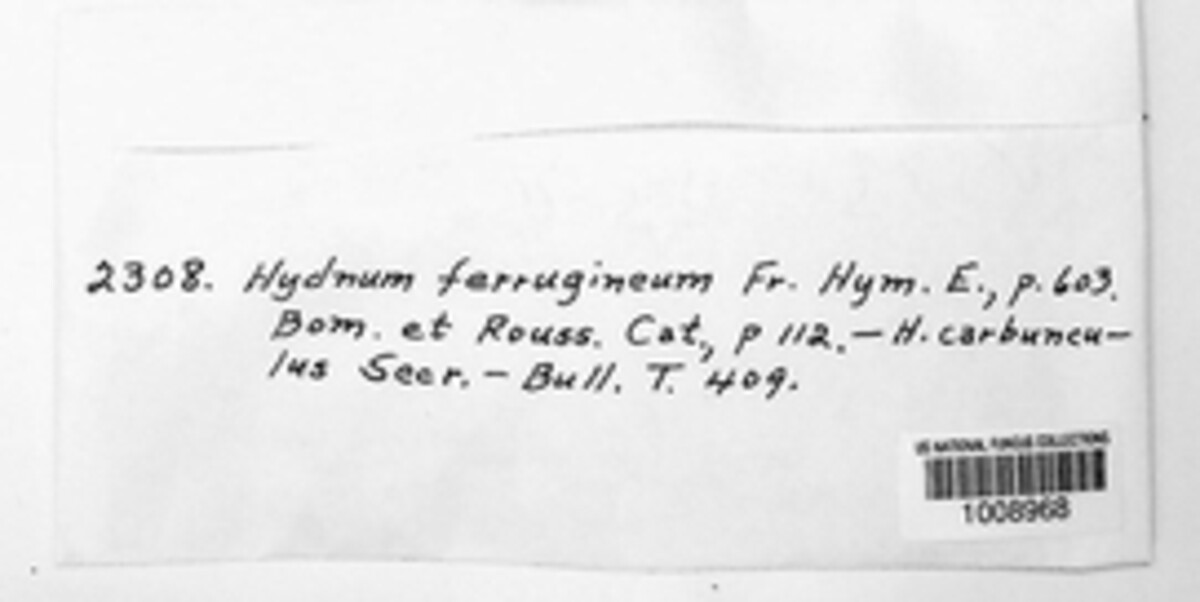 2308. Hydnum ferrugineum Fr. Hym. E., p. 603.
Bom. et Rouss. Cat., p 112. — H. carbuncu-
lus Secr. — Bull. T. 409.
US NATIONAL FUNGUS COLLECTIONS
1008968